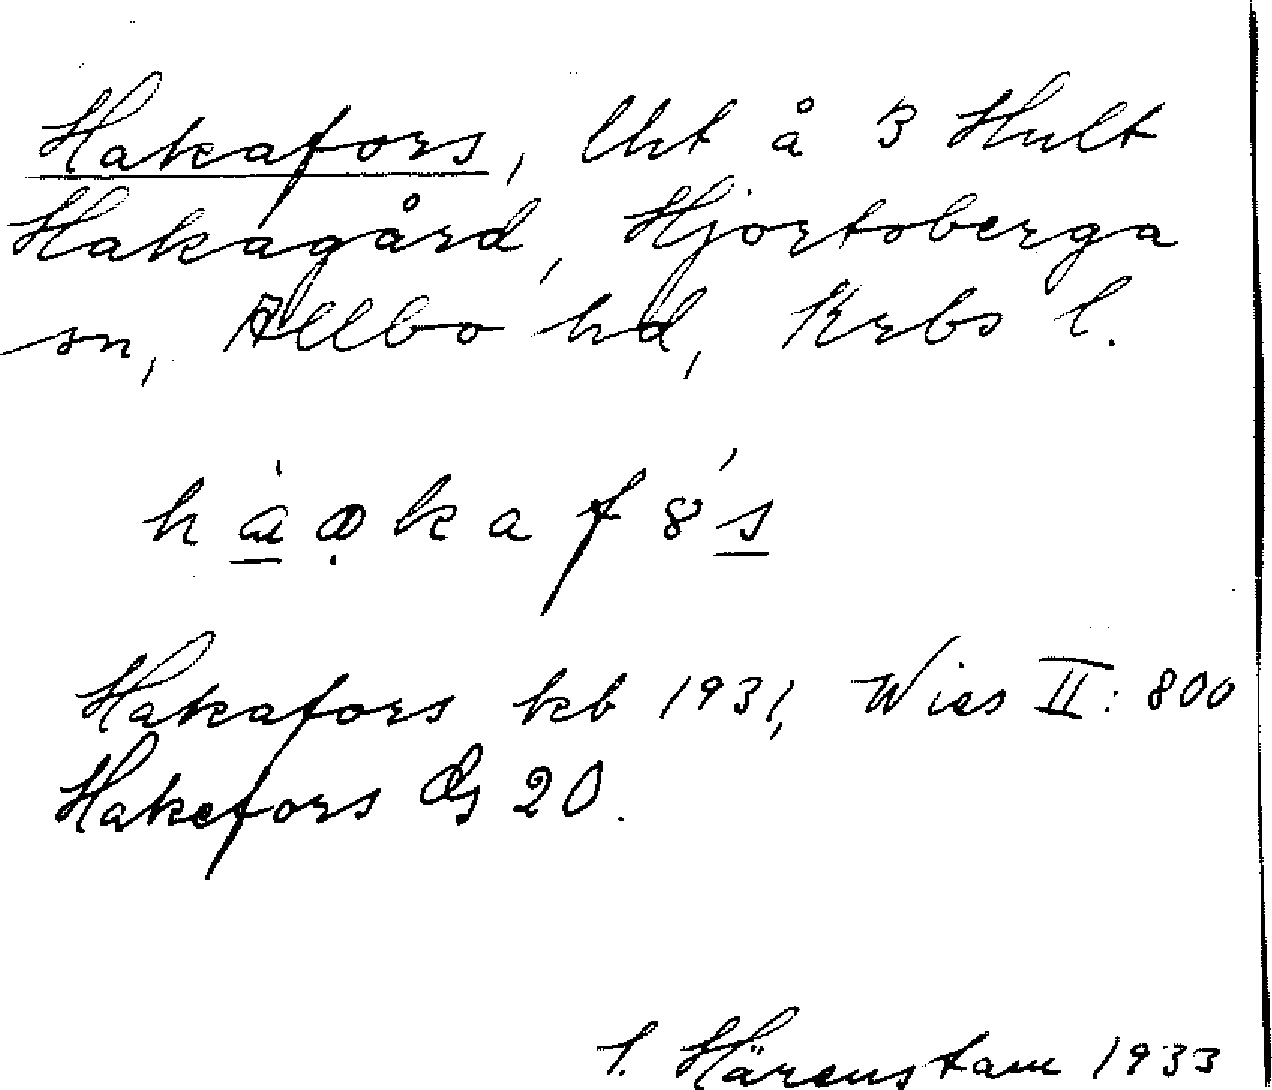 Hakafors, lht å 3 Hult
Hakagård, Hjortsberga
sn, Allbo hd, Krbs l.
Hakafors kb 1931, Wies II: 800
Hakefors GS 20.
Härenstam 1933